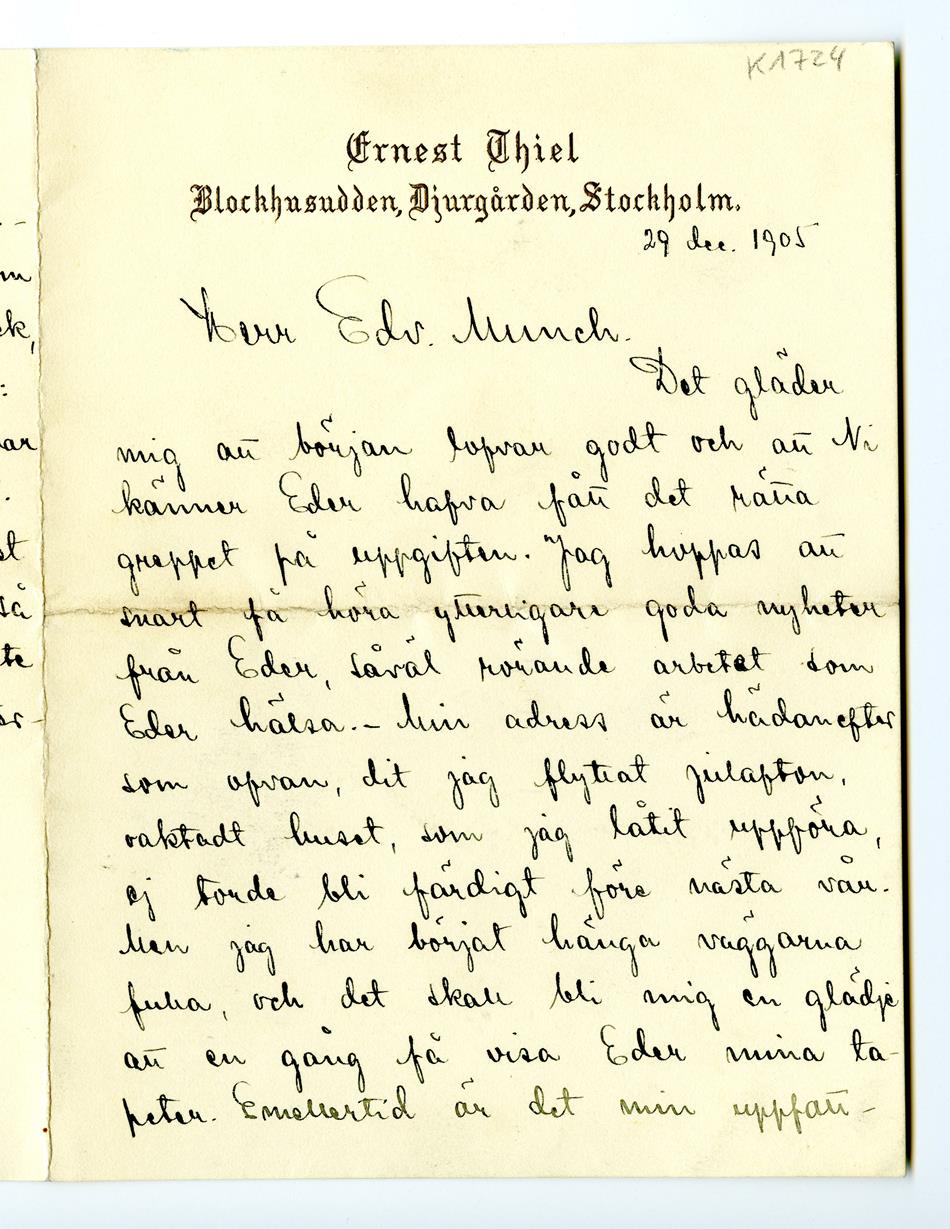 K1724
Ernest Thiel
Blockhusudden, Djurgården, Stockholm.
29 dec. 1905
Herr Edv. Munch.
Det gläder
mig att början lofvar godt och att Ni
känner Eder hafva fått det rätta
greppet på uppgiften. Jag hoppas att
snart få höra ytterligare goda nyheter
från Eder, såväl rörande arbetet som
Eder hälsa. – Min adress är hädanefter
som ofvan, dit jag flyttat julafton,
oaktadt huset, som jag låtit uppföra,
ej torde bli färdigt före nästa vår.
Men jag har börjat hänga väggarna
fulla, och det skall bli mig en glädje
att en gång få visa Eder mina ta-
peter. Emellertid är det min uppfatt-
m
ck,
:
ar
.
st
så
te
er-